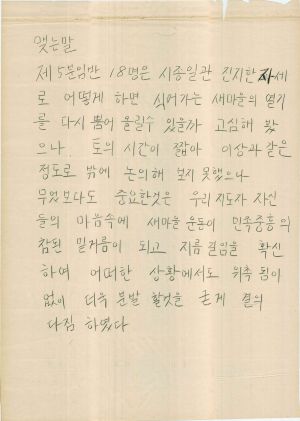 맺는말
제 5분임반 18명은 시종일관 진지한 자세
로 어떻게 하면 식어가는 새마을의 열기
를 다시 뿜어 올릴수 있을까 고심해 봤
으나. 토의 시간이 짧아 이상과 같은
정도로 밖에 논의해 보지 못했으나
무엇보다도 중요한것은 우리 지도가 자신
들의 마음속에 새마을 운동이 민족중흥의
참된 밑거름이 되고 지름길임을 확신
하여 어떠한 상황에서도 위축됨이
없이 더욱 분발 할것을 굳게 결의
다짐 하였다